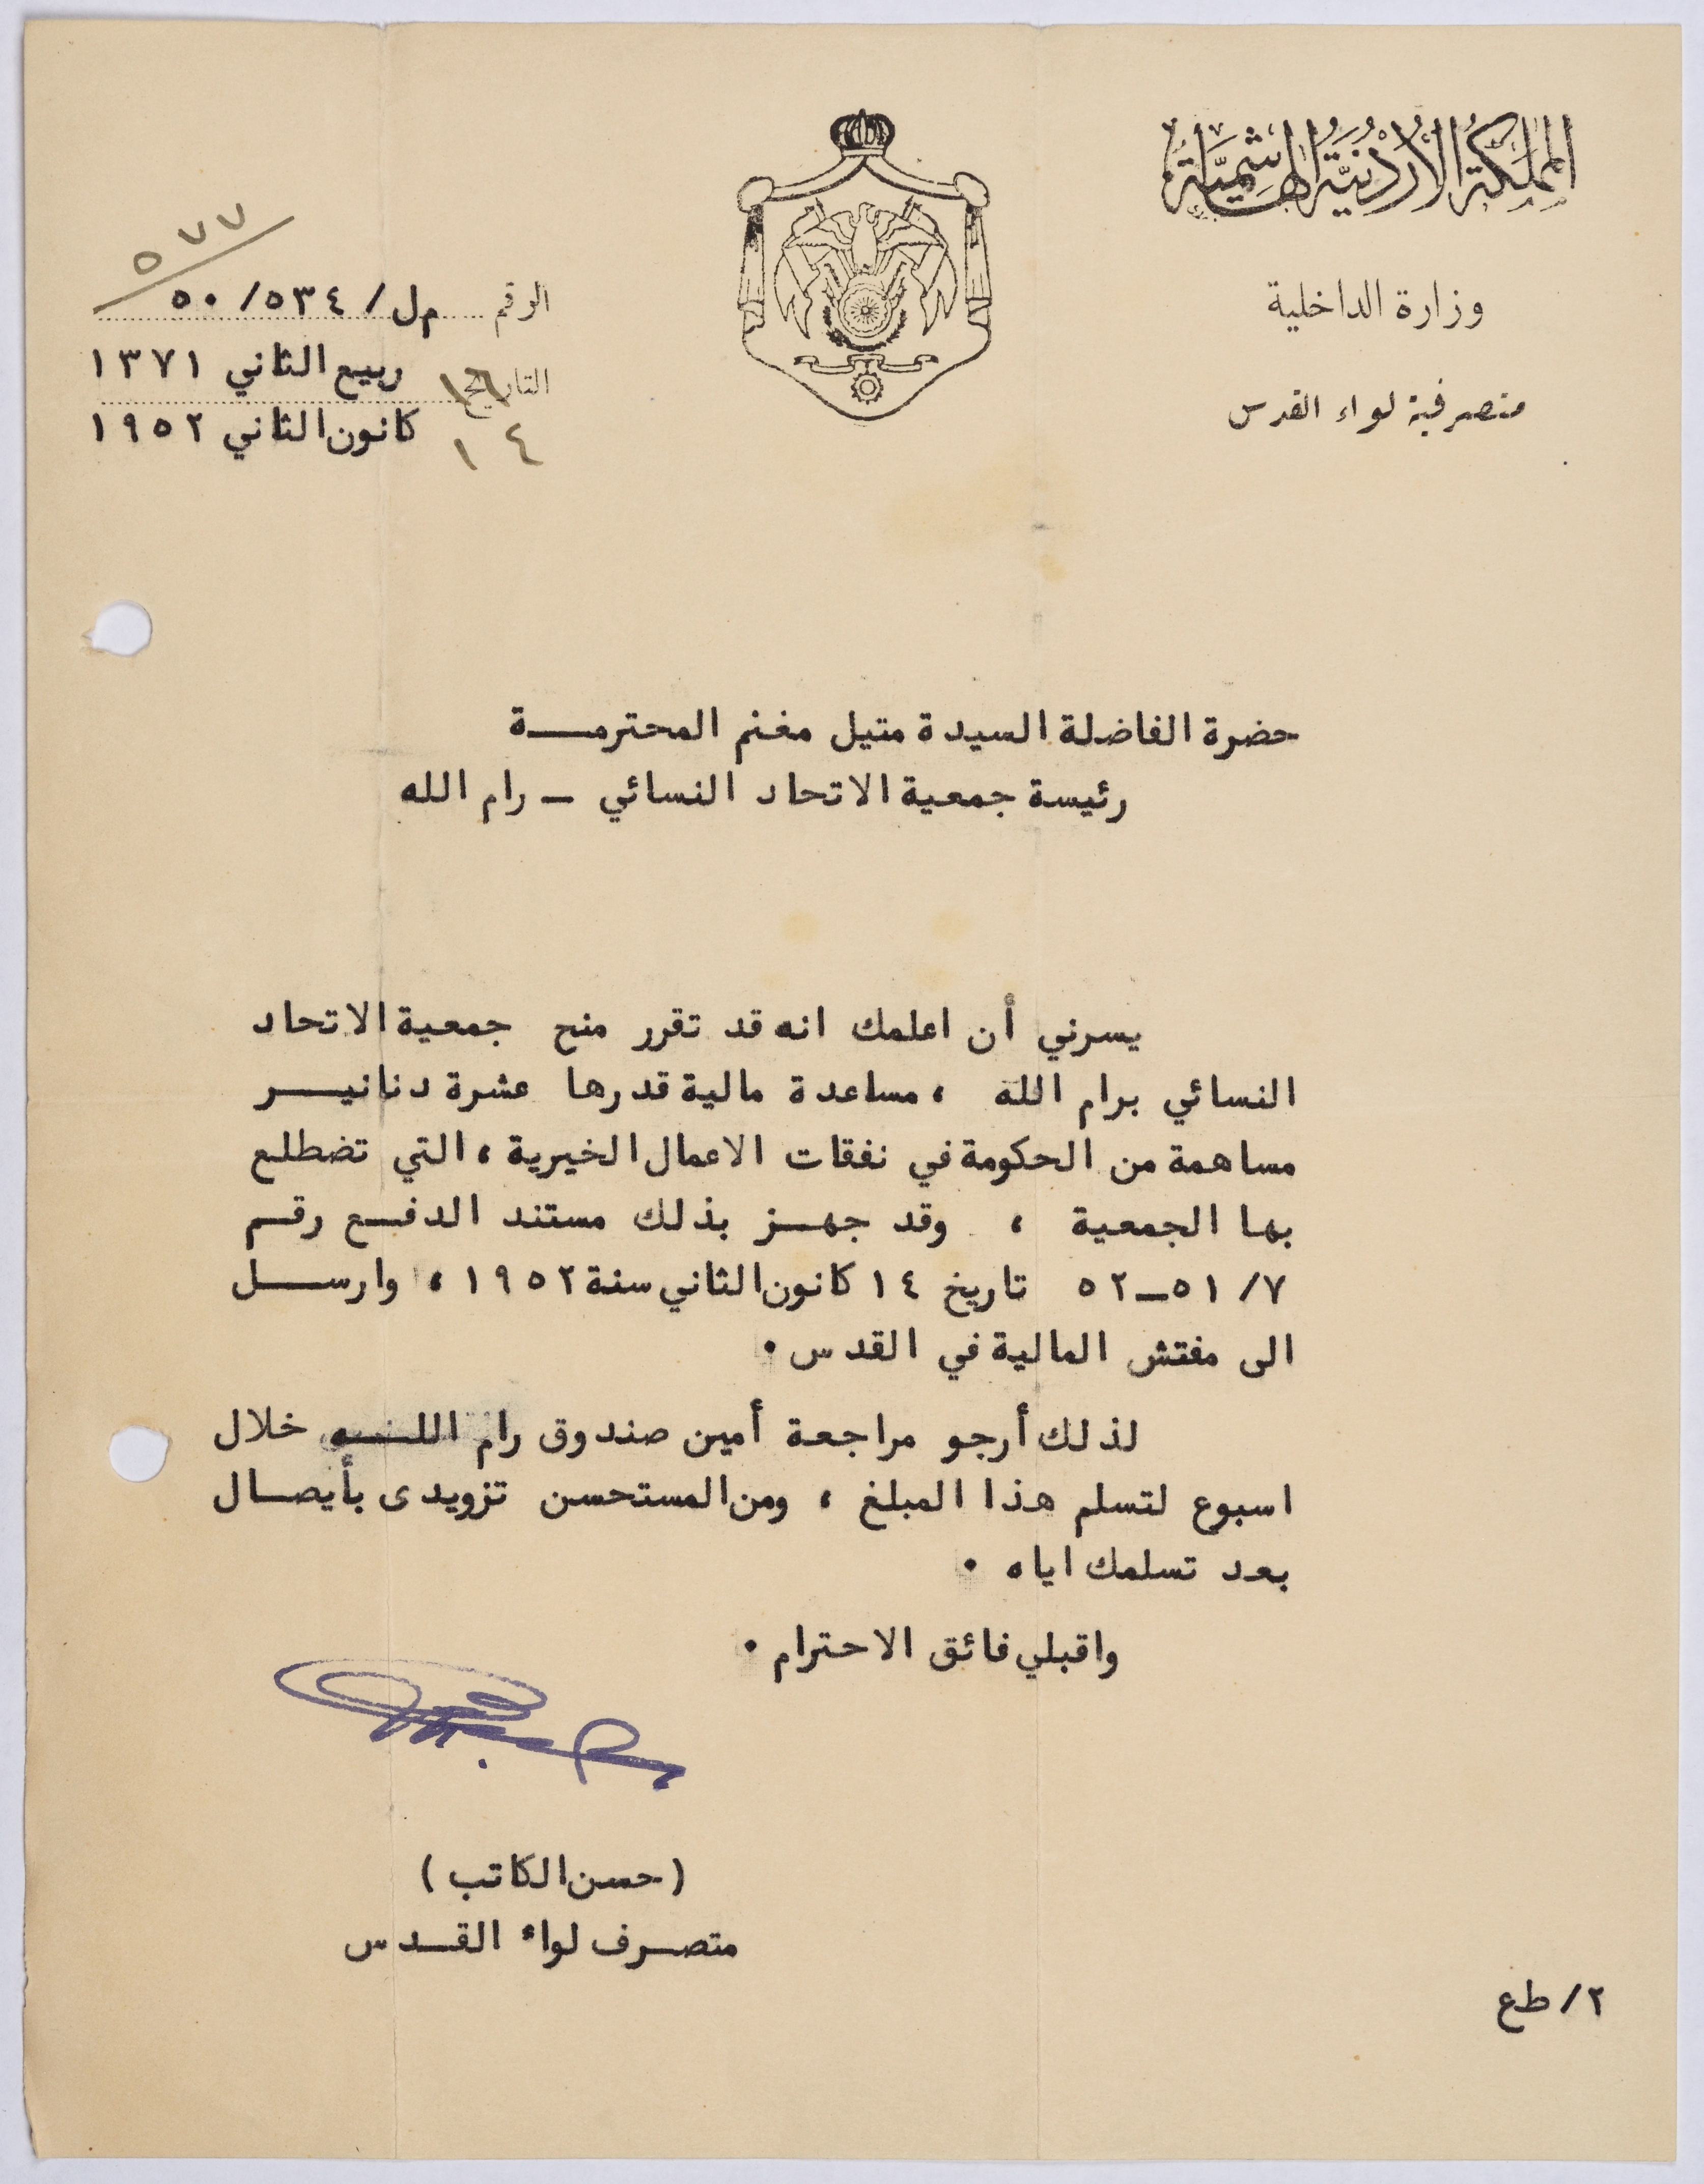 المملكة الأردنية الهاشمية
وزارة الداخلية
متصرفية لواء القدس
٥٧٧
الرقم م ل/ ٥٣٤/ ٥٠
التاريخ ١٦ ربيع الثاني ١٣٧١
١٤ كانون الثاني ١٩٥٢
حضرة الفاضلة السيدة متيل مغنم المحترمــة
رئيسة جمعية الاتحاد النسائي ـ رام الله
يسرني أن اعلمك انه قد تقرر منح جمعية الاتحاد
النسائي برام الله ، مساعدة مالية قدرها عشرة دنانيــر
مساهمة من الحكومة في نفقات الاعمال الخيرية ، التي تضطلع
بها الجمعية ، وقد جهــز بذلك مستند الدفــع رقــم
٧/ ٥١ــ٥٢ تاريخ ١٤ كانون الثاني سنة ١٩٥٢ ، وارســل
الى مفتش المالية في القدس ٠
لذلك أرجو مراجعة أمين صندوق رام اللــه خلال
اسبوع لتسلم هذا المبلغ ، ومن المستحسن تزويدى بأيصــال
بعد تسلمك اياه ٠
واقبلي فائق الاحترام ٠
(حسن الكاتب)
متصــرف لواء القــدس
٢/ طع